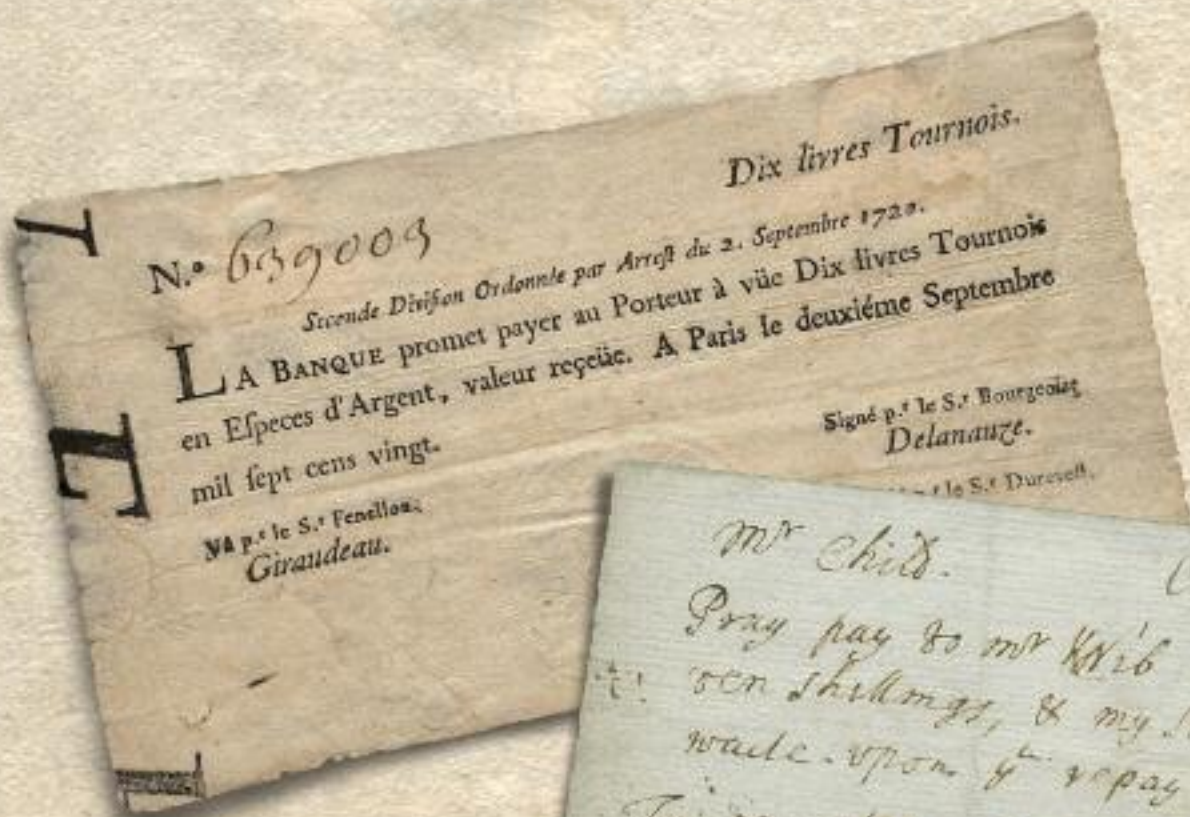 Dix livres Tournois.
N.º 639003
Seconde Diviſion Ordonnée par Arreſt du 2. Septembre 1720.
LA BANQUE promet payer au Porteur à vüe Dix livres Tournois
en Eſpeces d'Argent, valeur reçeüe. A Paris le deuxiéme Septembre
mil ſept cens vingt.
Signé p.r le S.r Bourgeois
Delanauze.
Vû p.r le S.r Fenellon.
Giraudeau.
le S.r Dureveſt.
Mr Child.
Pray pay to mr
ten shillings, & my
waite upon yu repay